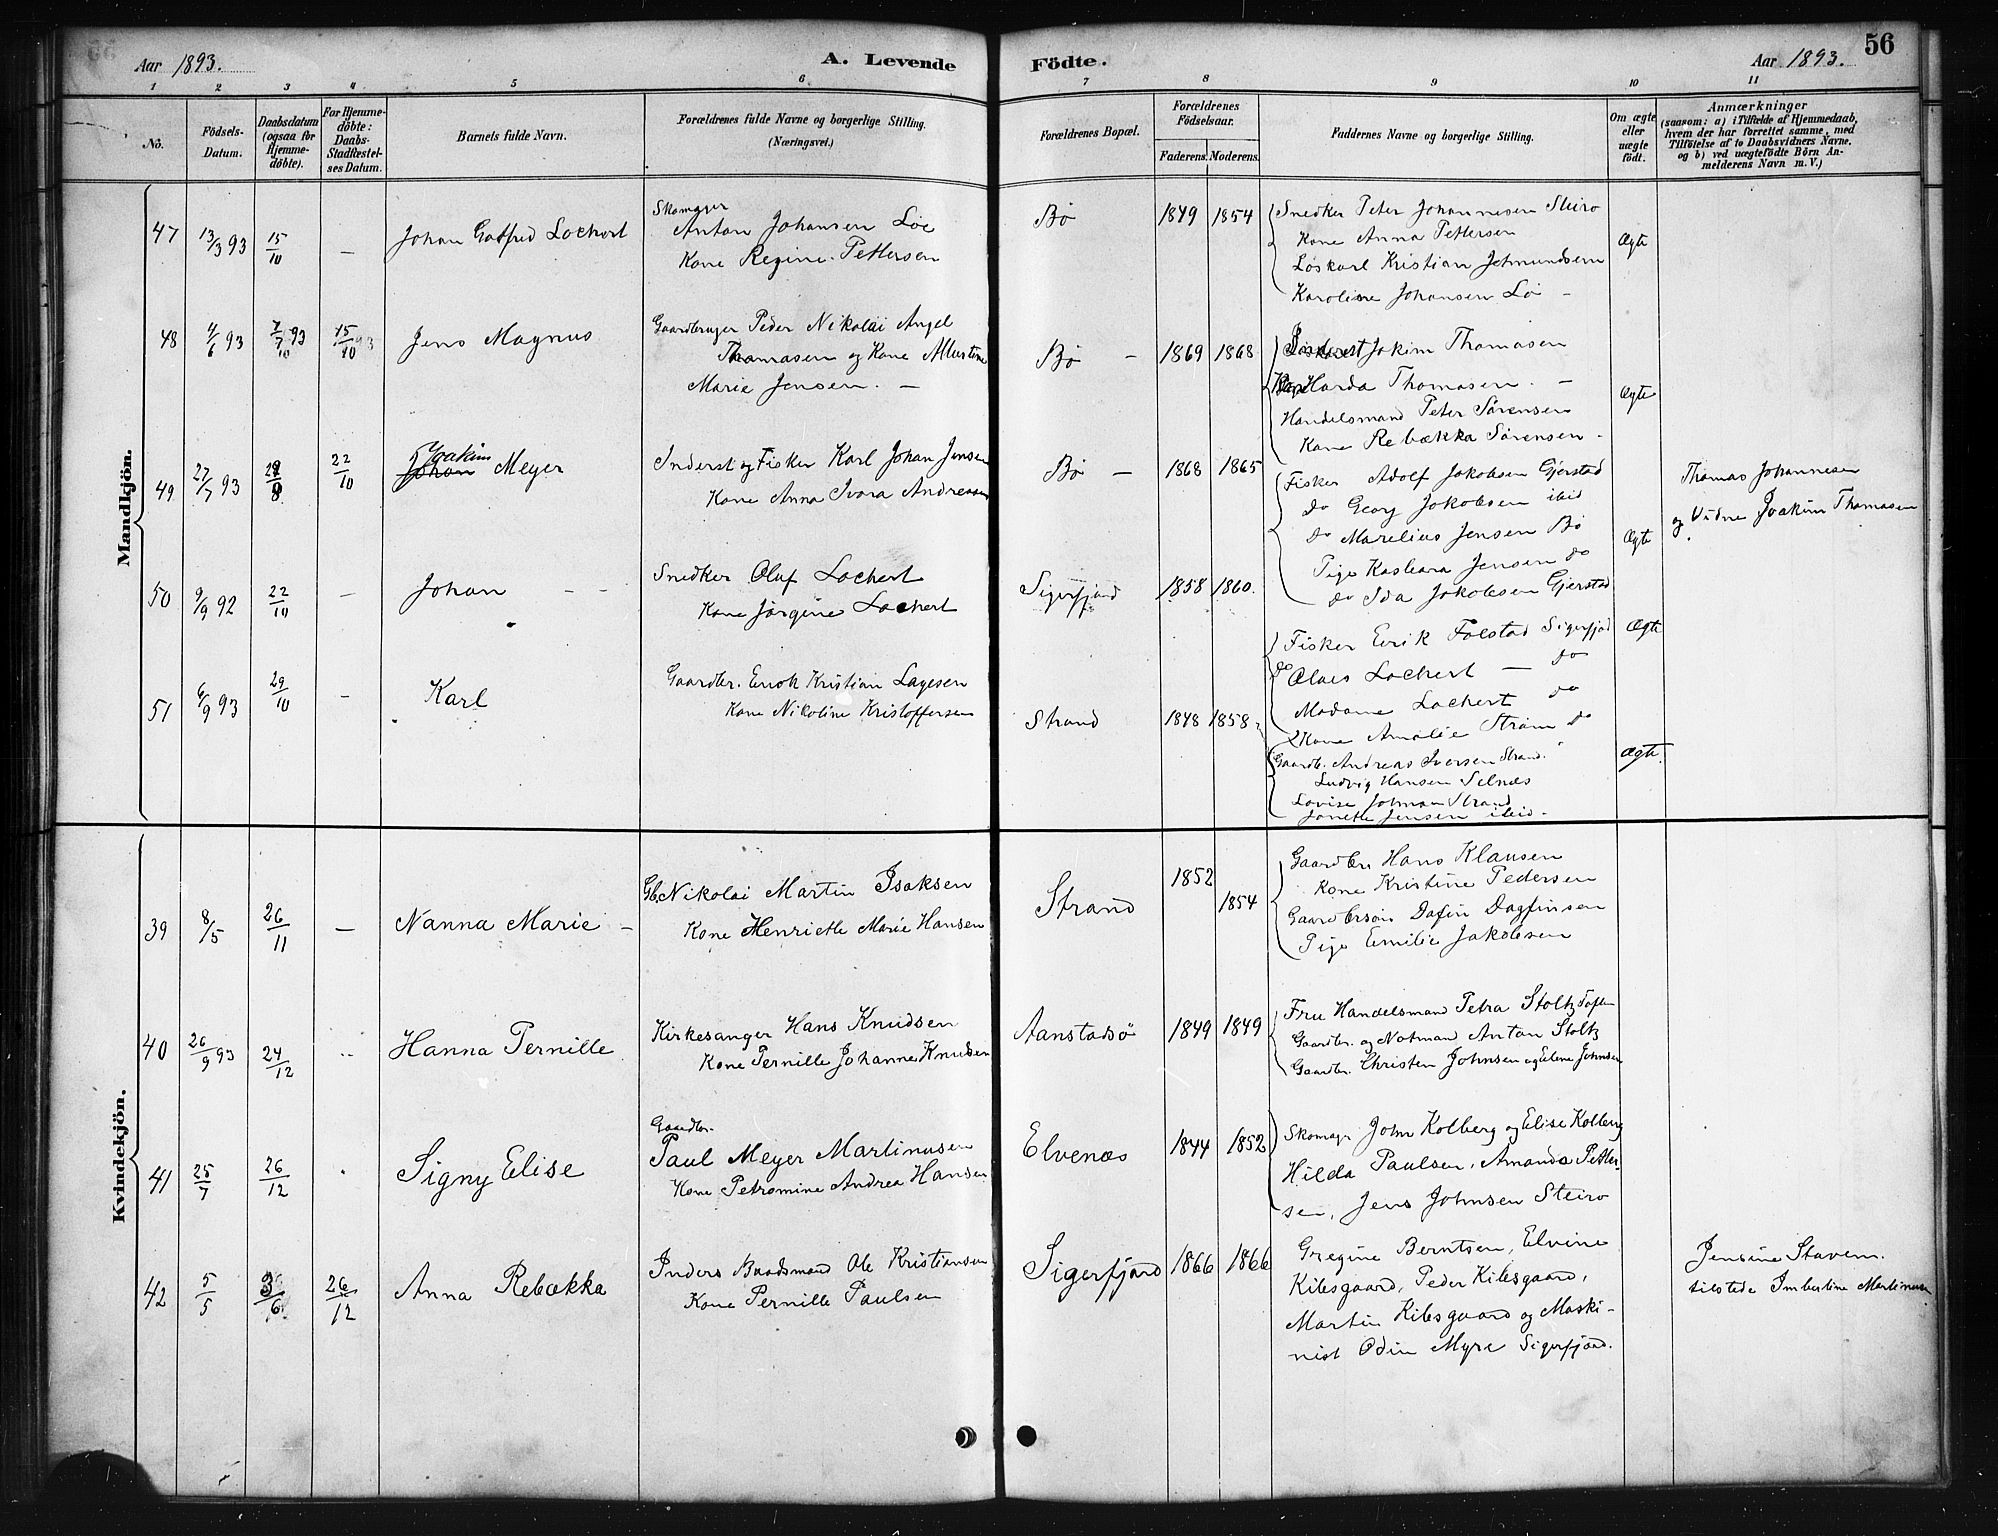 Aar 1893.
A. Levende
Födte.
Aar 1893.
56
1 2 3 4 5 6 7 8 9 10 11
No.
Födsels-
Datum.
Daabsdatum
(ogsaa for
Hjemme-
döbte).
For Hjemme-
döbte:
Daabs-
Stadfæstel-
ses Datum.
Barnets fulde Navn.
Forældrenes fulde Navne og borgerlige Stilling.
(Næringsvei.)
Forældrenes Bopæl.
Forældrenes
Födselsaar.
Faderens. Moderens.
Faddernes Navne og borgerlige Stilling.
Om ægte
eller
uægte
födt.
Anmærkninger
(saasom: a) i Tilfælde af Hjemmedaab,
hvem der har forrettet samme, med
Tilföielse af to Daabsvidners Navne,
og b) ved uægtefödte Börn An-
melderens Navn m. V.)
Mandkjön.
47 13/3 93 15/10 — Johan Gotfred Lochert
Skomager
Anton Johansen Löe
Kone Regine Pettersen
Bö 1849 1854
Snedker Peter Johannesen Steiro
Kone Anna Pettersen
Löskarl Kristian Jetmundsen
Karoline Johansen Lö —
Ægte
48 4/6 93 7/7 93 15/10 93 Jens Magnus
Gaardbruger Peder Nikolai Angel
Thomasen og Kone
Marie Jensen. —
Bö — 1869 1868
Jokim Thomasen
Harda Thomasen. —
Handelsmand Peter Sörensen
Kone Rebækka Sörensen.
Ægte
49 27/7 93 22/10 Joakim
Johan Meyer
Inderst og Fisker Karl Johan Jensen
Kone Anna Ivara Andreasen
Bö — 1868 1865
Fisker Adolf Jakobsen Gjerstad
Do Georg Jakobsen ibid
Do Marelius Jensen Bö
Pige Kasbara Jensen do
do Ida Jakobsen Gjerstad
Ægte
Thomas Johannesen
og Vidne Joakim Thomasen
50 9/9 92 22/10 — Johan — —
Snedker Oluf Lochert
Kone Jörgine Lochert
Sigerfjord 1858 1860.
Fisker Erik Folstad Sigerfjod
do Olaes Lochert — do
Madame Lochert do
Kone Amalie Ström do
Ægte
51 6/9 93 29/10 — Karl
Gaardbr. Enok Kristian Lagesen
Kone Nikoline Kristoffersen
Strand 1848 1858
Gaardb. Andreas Iversen Strand.
Ludvig Hansen Selnæs
Lovise Johnsen Strand
Janette Jensen ibid.
Ægte.
Kvindekjön.
39 8/5 26/11 — Nanna Marie —
Gb. Nikolai Martin Isaksen
Kone Henriette Marie Hansen
Strand 1852 1854
Gaardbr Hans Klausen
Kone Kristine Pedersen
Gaardbrsön Dafin Dagfinsen
Pige Emilie Jakobsen
40 26/9 93 24/12 Hanna Pernille
Kirkesanger Hans Knudsen
Kone Pernille Johanne Knudsen
Aanstadsö 1849 1849
Fru Handelsmand Petra Stoltz
Gaardbr. og Notmand Anton Stoltz
Gaardbr. Christen Johnsen og Elene Johnsen
41 25/7 26/12 Signy Elise
Gaardbr.
Paul Meyer Martinusen
Kone Petromine Andrea Hansen
Elvenæs 1844 1852
Skomagr John Kolberg og Elise Kolberg
Hilda Paulsen, Amanda Petter-
sen, Jens Johnsen Steiro
42 5/5 3/6 26/12 Anna Rebækka
Inders Baadsmand Ole Kristiansen
Kone Pernille Paulsen
Sigerfjord 1866 1866
Gregine Berntsen, Elvine
Kilesgaard, Peder Kilesgaard,
Martin Kilesgaard og Maski-
nist Odin Myre Sigerfjord.
Jensine Staven.
tilstede Imbertine Martinusen